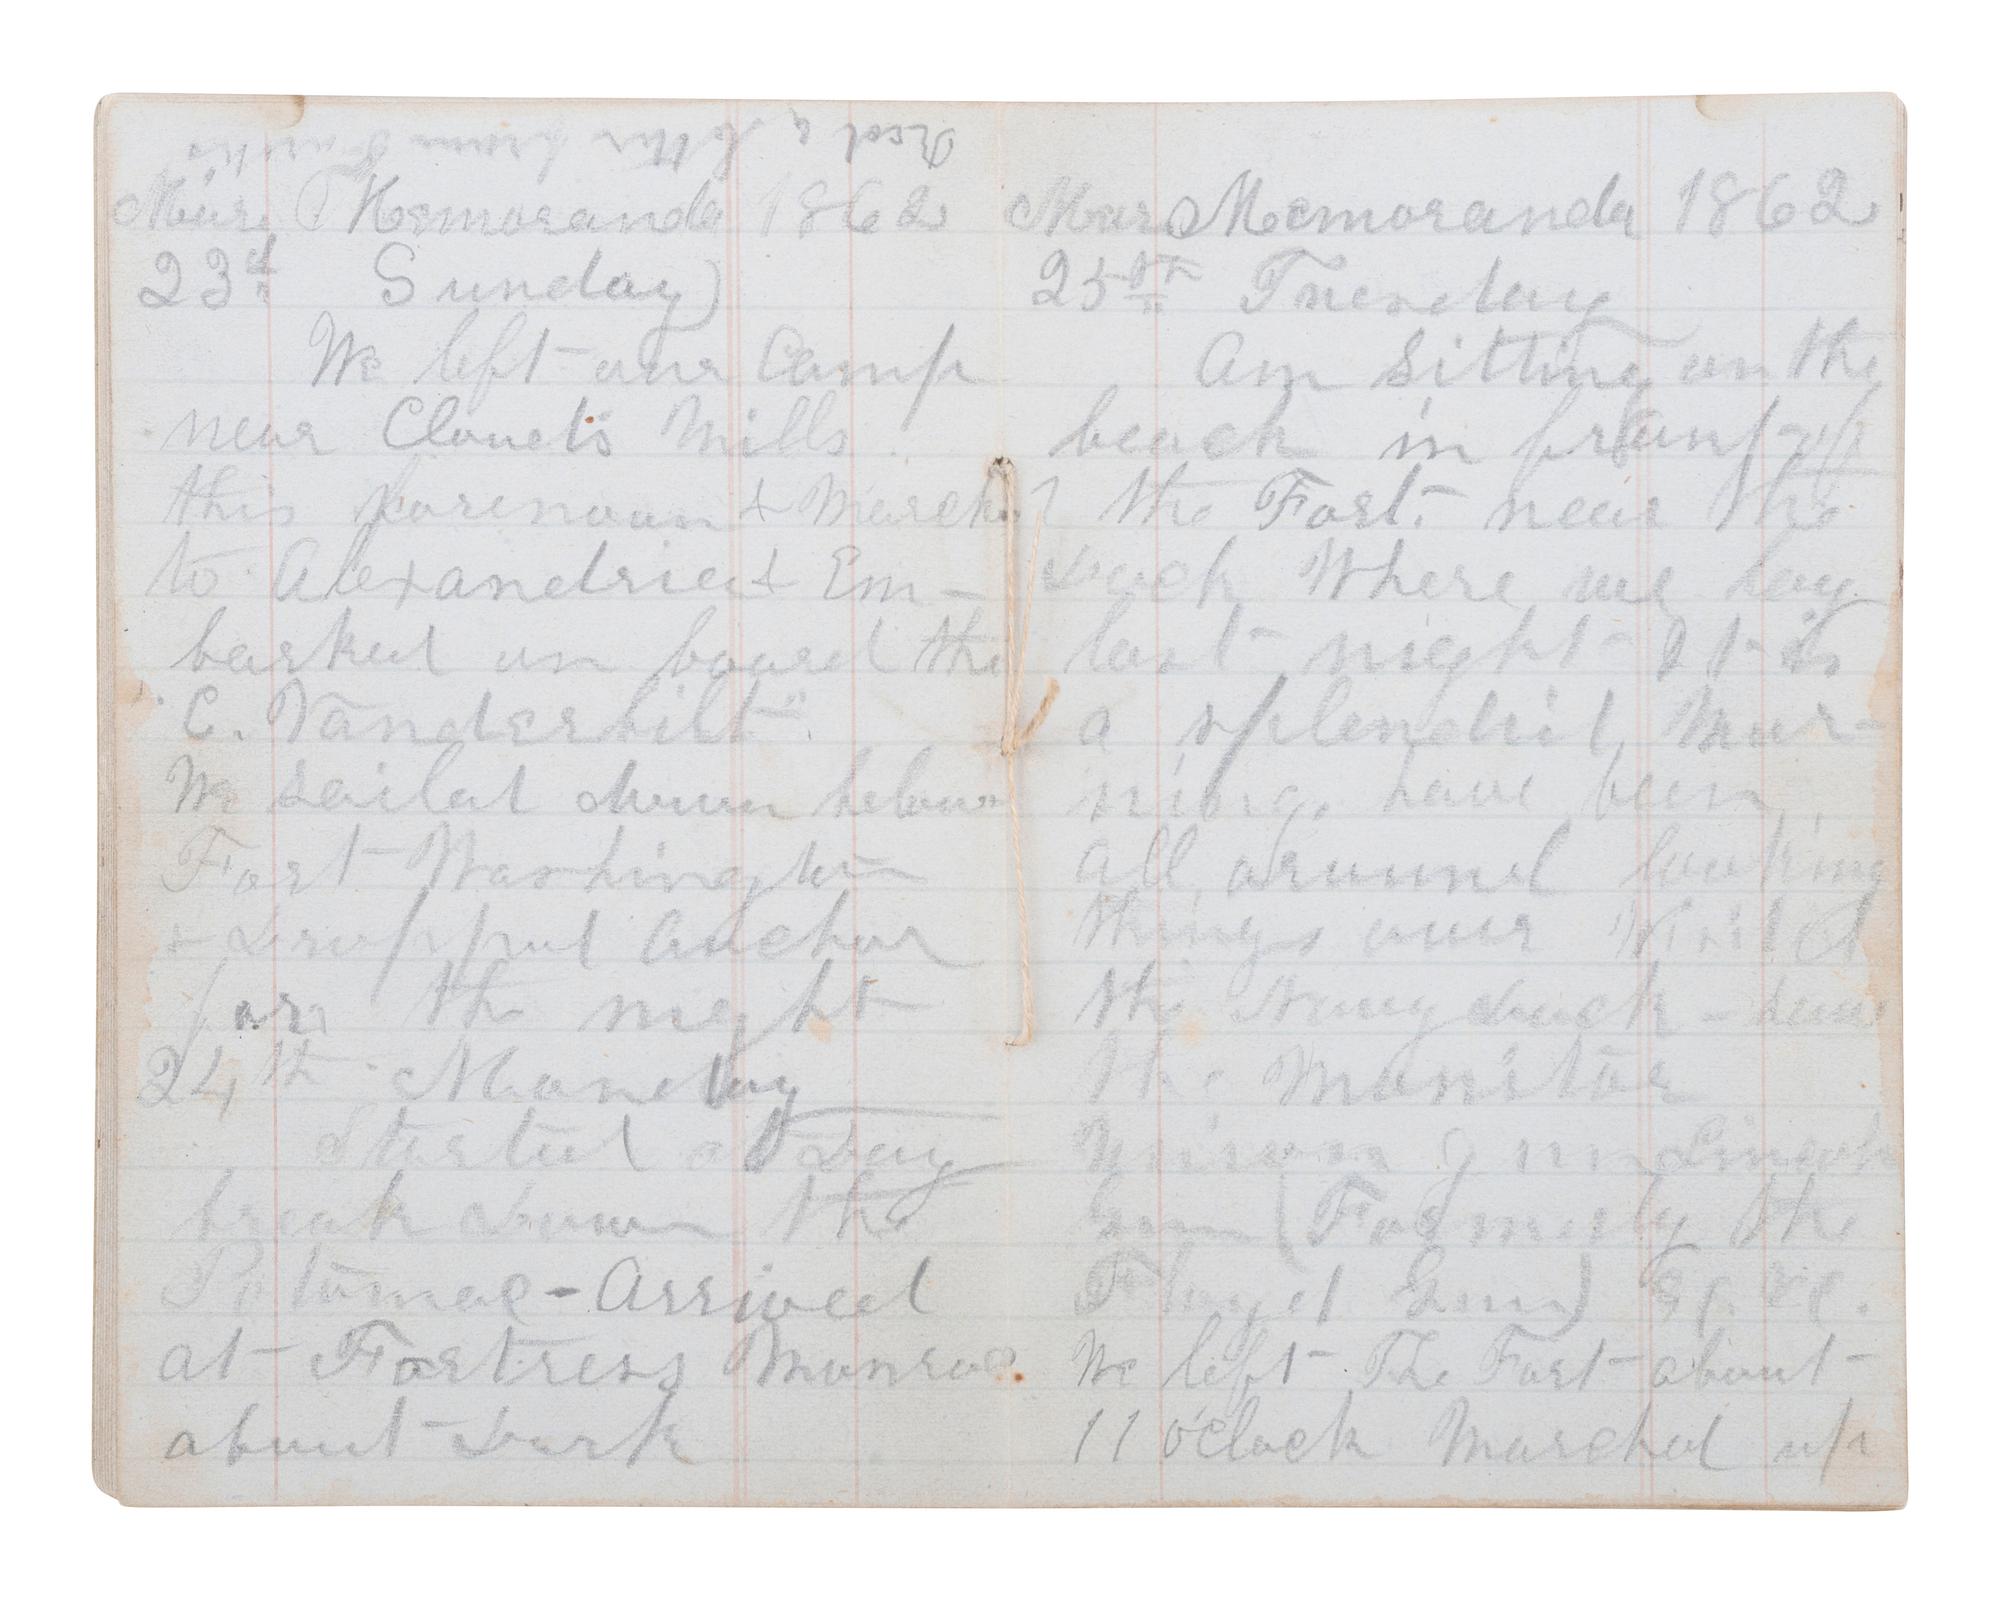 Recd a letter from
Mar. Memoranda 1862
23d Sunday)
We left our Camp
near Clouds Mills
this forenoon & Marched
to Alexandria & Em-
barked on board the
"C. Vanderbilt".
We sailed down below
Fort Washington
& Dropped Anchor
for the night
24th Monday
Started at Day
break down the
Potomac - Arrived
at Fortress Monroe
about Dark
Mar Memoranda 1862
25th Tuesday
Am Sitting on the
beach in front of
the Fort. near the
Dock Where we lay
last night It is
a splendid Mor-
ning, have been
all around looking
things over Visited
the Navy Dock - saw
the Monitor
Union Gun Lincoln
Gun (Formerly the
Floyd Gun) &c. &c.
We left The Fort about
11 o'clock Marched up